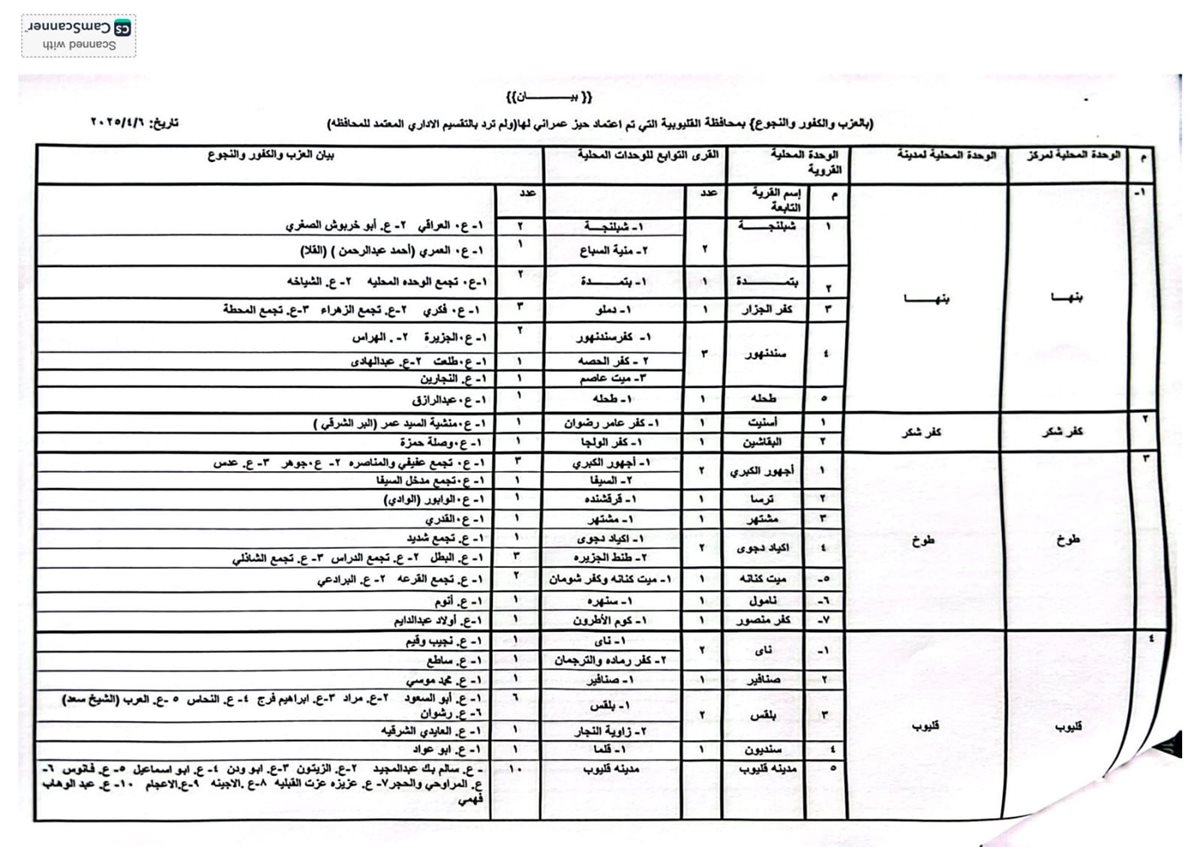 Scanned with
CS CamScanner
{{ بيـــــــــان}}
(بالعزب والكفور والنجوع} بمحافظة القليوبية التي تم اعتماد حيز عمراني لها(ولم ترد بالتقسيم الاداري المعتمد للمحافظه) تاريخ: ٢٠٢٥/٤/٦
م الوحدة المحلية لمركز الوحدة المحلية لمدينة الوحدة المحلية القروية القرى التوابع للوحدات المحلية بيان العزب والكفور والنجوع
م إسم القرية التابعة عدد عدد
١- بنها بنهـــا ١ شبلنجـــة ٢ ١- شبلنجـــة ٢ ١- ع٠ العراقي ٢- ع. أبو خربوش الصغري
٢- منية السباع ١ ١- ع٠ العمري (أحمد عبدالرحمن ) (القلا)
٢ بتمـــــدة ١ ١- بتمـــــدة ٢ ١-ع٠ تجمع الوحده المحليه ٢- ع. الشياخه
٣ كفر الجزار ١ ١- دملو ٣ ١- ع٠ فكري ٢-ع. تجمع الزهراء ٣-ع. تجمع المحطة
٤ سندنهور ٣ ١- كفرسندنهور ٢ ١- ع٠الجزيرة ٢- . الهراس
٢ - كفر الحصه ١ ١- ع٠طلعت ٢-ع. عبدالهادى
٣- ميت عاصم ١ ١- ع. النجارين
٥ طحله ١ ١- طحله ١ ١- ع٠عبدالرازق
٢ كفر شكر كفر شكر ١ أسنيت ١ ١- كفر عامر رضوان ١ ١- ع٠منشية السيد عمر (البر الشرقي )
٢ البقاشين ١ ١- كفر الولجا ١ ١- ع٠وصلة حمزة
٣ طوخ طوخ ١ أجهور الكبري ٢ ١- أجهور الكبري ٣ ١- ع٠ تجمع عفيفي والمناصره ٢- ع٠جوهر ٣- ع. عدس
٢- السيفا ١ ١- ع٠تجمع مدخل السيفا
٢ ترسا ١ ١- قرقشنده ١ ١- ع٠الوابور (الوادي)
٣ مشتهر ١ ١- مشتهر ١ ١- ع٠القدري
٤ اكياد دجوى ٢ ١- اكياد دجوى ١ ١- ع. تجمع شديد
٢- طنط الجزيره ٣ ١- ع. البطل ٢- ع. تجمع الدراس ٣- ع. تجمع الشاذلي
٥- ميت كنانه ١ ١- ميت كنانه وكفر شومان ٢ ١- ع. تجمع القرعه ٢- ع. البرادعي
٦- نامول ١ ١- سنهره ١ ١- ع. أنوم
٧- كفر منصور ١ ١- كوم الأطرون ١ ١-ع. أولاد عبدالدايم
٤ قليوب قليوب ١- ناى ٢ ١- ناى ١ ١- ع. نجيب وقيم
٢- كفر رماده والترجمان ١ ١- ع. ساطع
٢ صنافير ١ ١- صنافير ١ ١- ع. محمد موسي
٣ بلقس ٢ ١- بلقس ٦ ١- ع. أبو السعود ٢-ع. مراد ٣-ع. ابراهيم فرج ٤- ع. النحاس ٥ -ع. العرب (الشيخ سعد)
٦- ع. رشوان
٢- زاوية النجار ١ ١-ع. العايدي الشرقيه
٤ سنديون ١ ١- قلما ١ ١- ع. ابو عواد
٥ مدينه قليوب مدينه قليوب ١٠ - ع. سالم بك عبدالمجيد ٢-ع. الزيتون ٣-ع. ابو ودن ٤- ع. ابو اسماعيل ٥- ع. فانوس ٦-
ع. المراوحي والحجر٧- ع. عزيزه عزت القبليه ٨-ع. الاجينه ٩-ع.الاعجام ١٠- ع. عبد الوهاب
فهمي